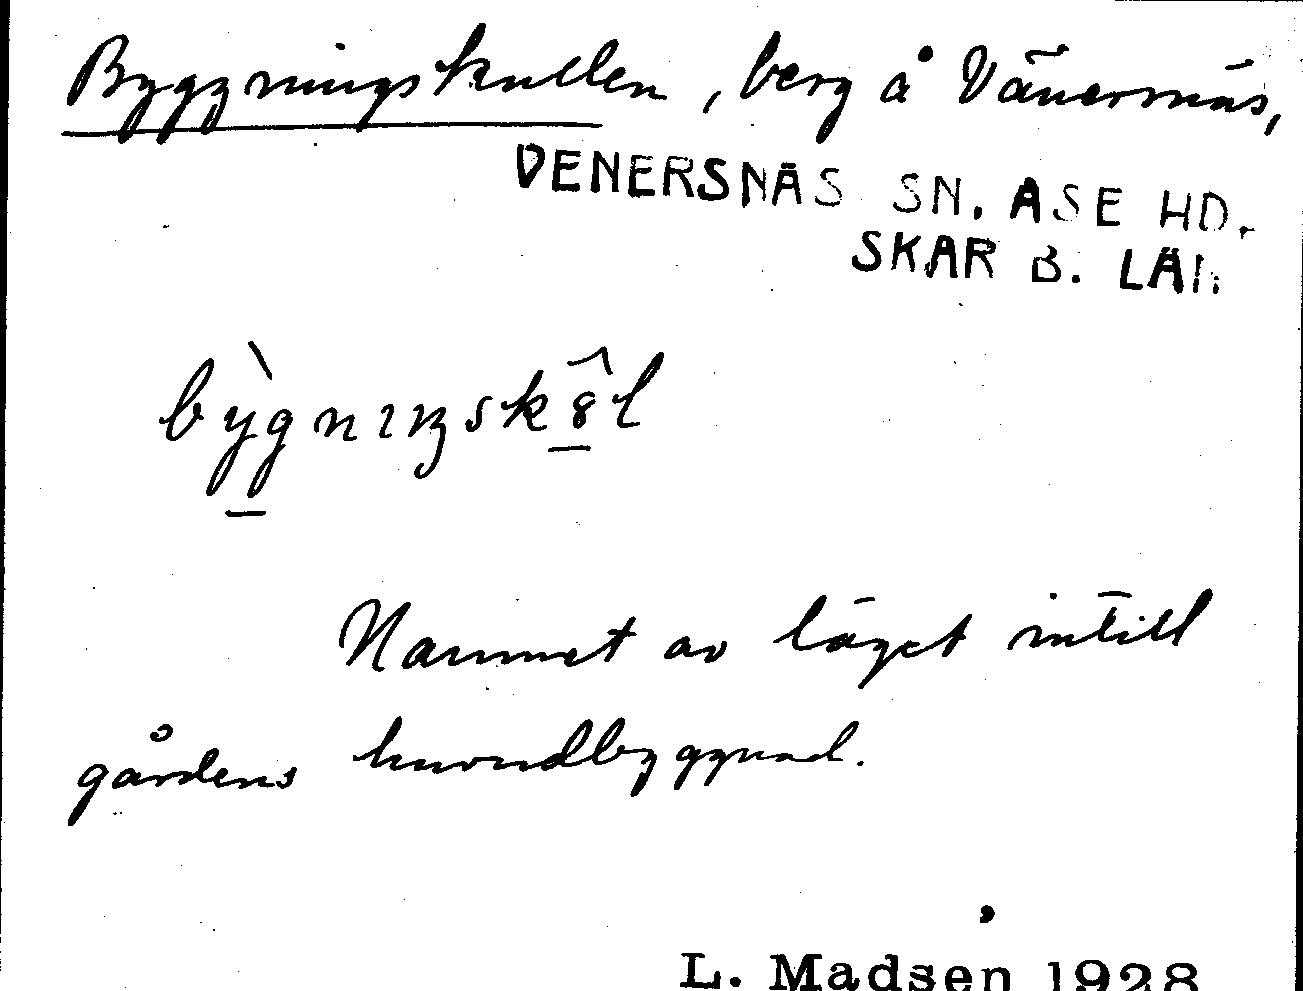 Byggningskullen, berg å Vänernäs,
VENERSNÄS SN. ÅSE HD.
SKARB. LÄN
bỳgnıŋskȣ̂l
Namnet av läget intill
gårdens huvudbyggnad.
L. Madsen 1928